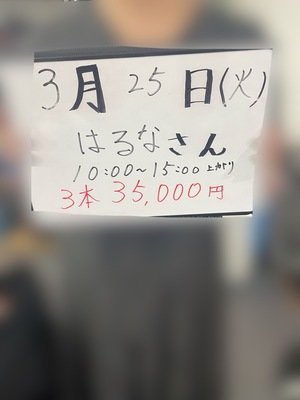 3月25日(火)
はるなさん
10:00~15:00 上がり
3本 35,000円